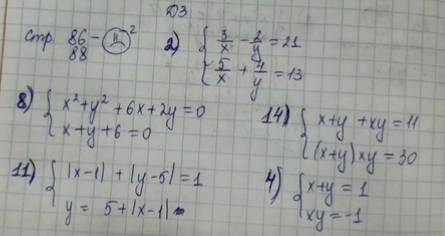 ДЗ
стр. 86 - 2
88
2) { 3/x - 2/y = 21
5/x + 7/y = 13
8) { x² + y² + 6x + 2y = 0
x + y + 6 = 0
14) { x + y + xy = 11
(x + y) xy = 30
11) { |x - 1| + |y - 5| = 1
y = 5 + |x - 1|
4) { x + y = 1
xy = -1